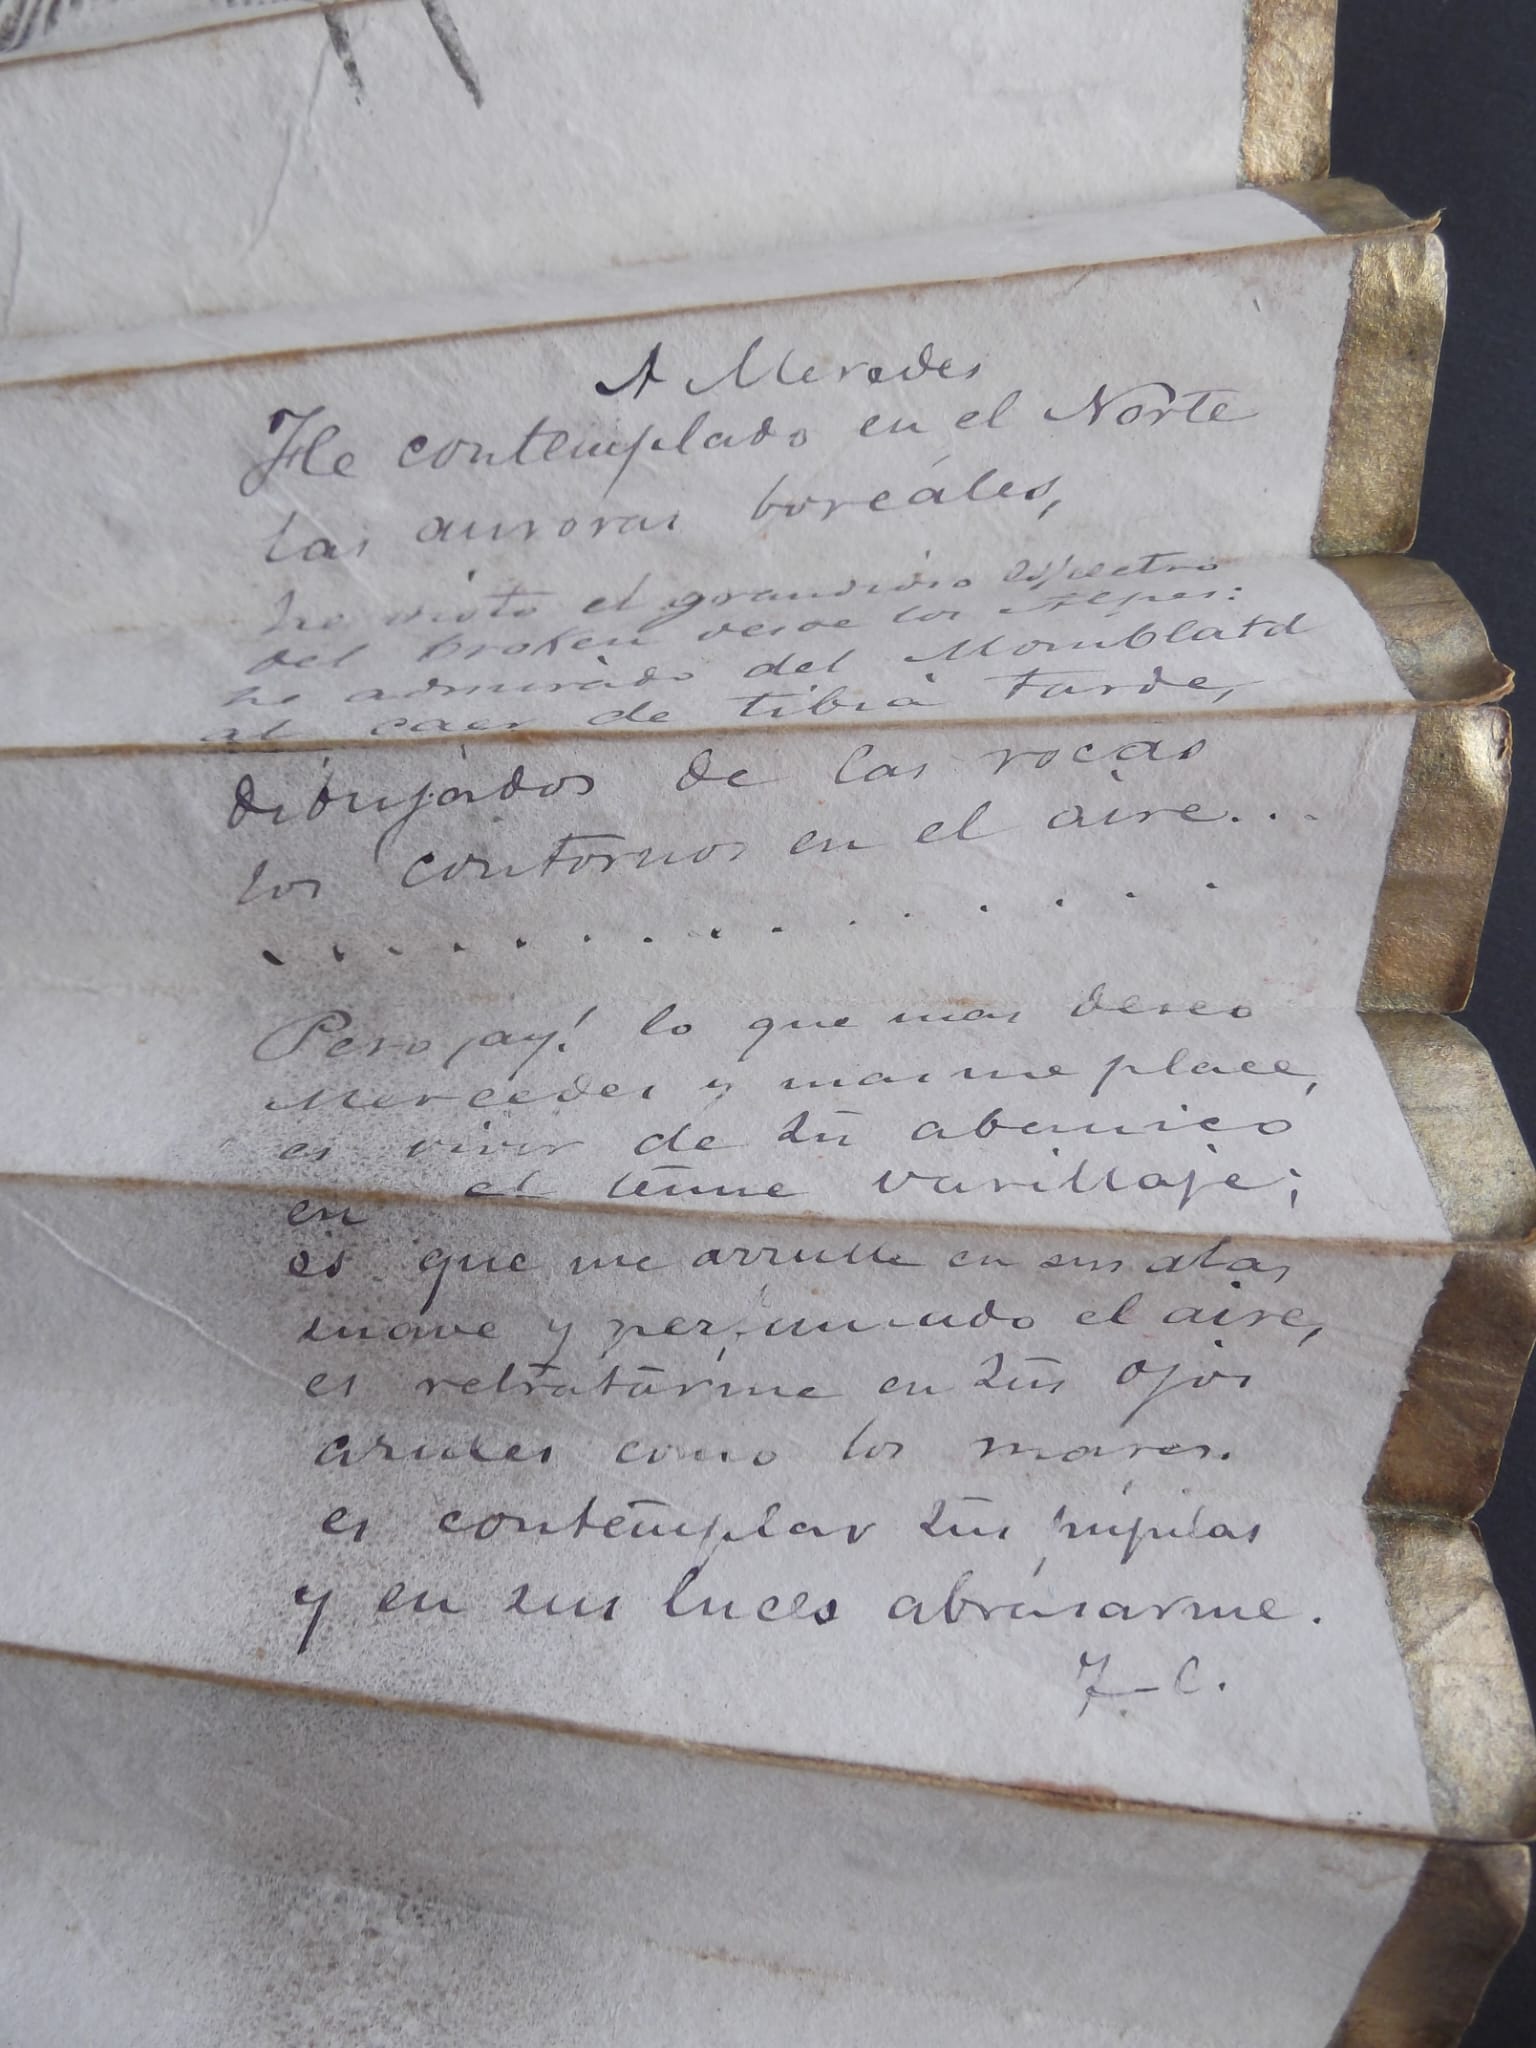 A Mercedes
He contemplado en el Norte
las auroras boreáles,
he visto el grandioso espectro
del broken desde los Alpes:
he admirádo del Momblatd
al caer de tibia tarde,
dibujádos de las rocas
los contornos en el aire...
. . . . . . . . . . . . . .
Pero ¡ay! lo que mas deseo
Mercedes y mas me place,
es vivir de tu abanico
en el tenue varillaje;
es que me arrulle en sus alas
suave y perfumado el aire,
es retratarme en tus ojos
azules como los mares.
es contemplar tus pupilas
y en sus luces abrasarme.
F-C.